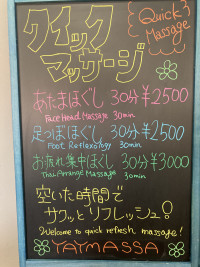 クイック
マッサージ
Quick
Massage
あたまほぐし 30分 ¥2500
Face Head Massage 30min
足つぼほぐし 30分 ¥2500
Foot Reflexology 30min
お疲れ集中ほぐし 30分 ¥3000
Thai Arrange Massage 30min
空いた時間で
サクッとリフレッシュ!
Welcome to quick refresh massage!
YAYMASSA